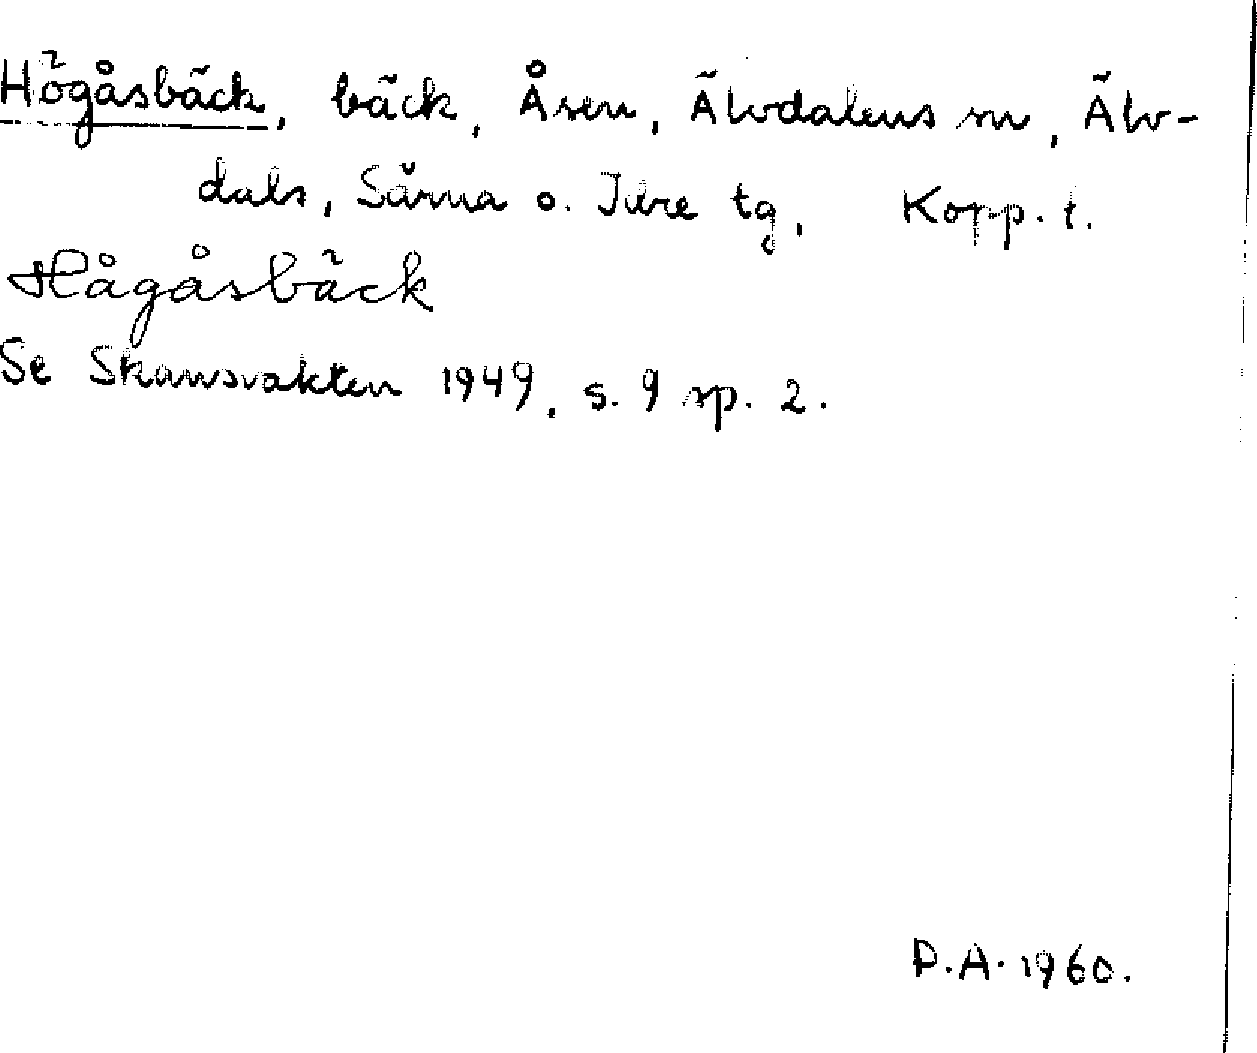 Högåsbäck, bäck, Åsen, Älvdalens sn, Älv-
dals, Särna o. Idre tg, Kopp. l.
Hågåsbäck
Se Skansvakten 1949, s. 9 sp. 2.
D.A. 1960.